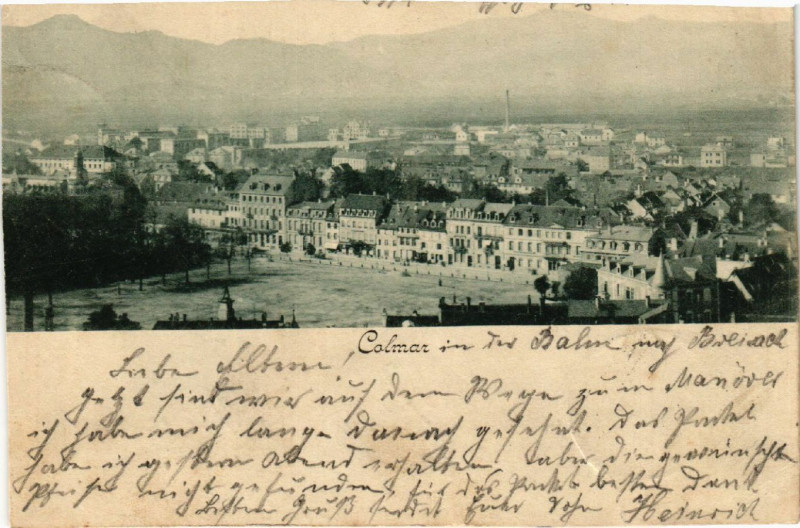 Colmar in der Bahn nach Breisach
Liebe Eltern!
Jetzt sind wir auf dem Wege zum Manöver
ich habe mich lange danach gesehnt. Das Paket
habe ich gestern Abend erhalten, aber die gewünschte
Pfeife nicht gefunden, für das Paket besten Dank
Besten Gruß sendet Euer Sohn Heinrich